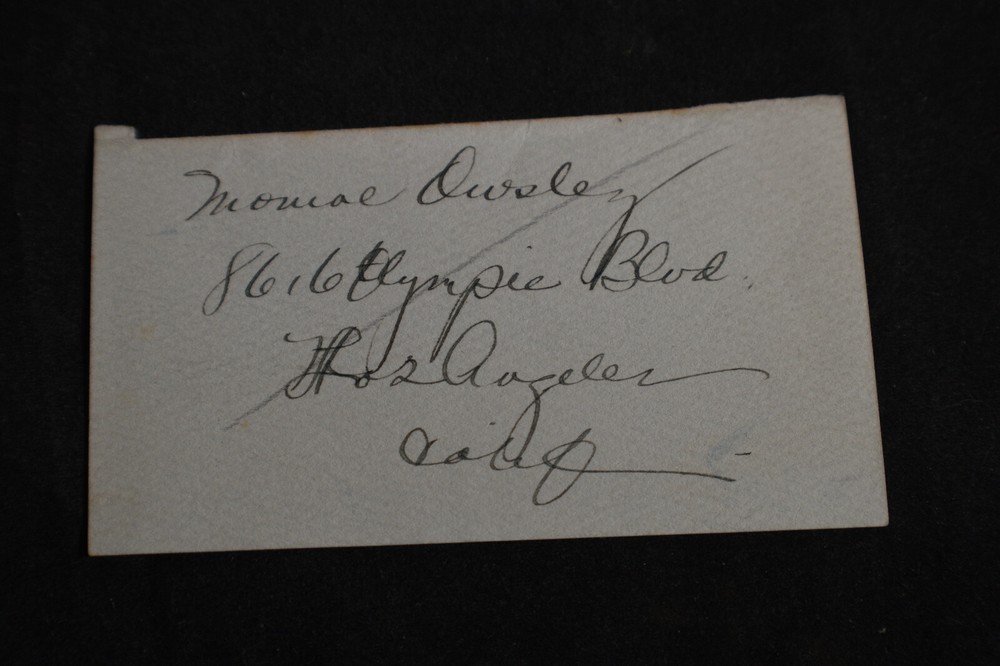 Monroe Owsley
8616 Olympic Blvd.
Los Angeles
Calif -